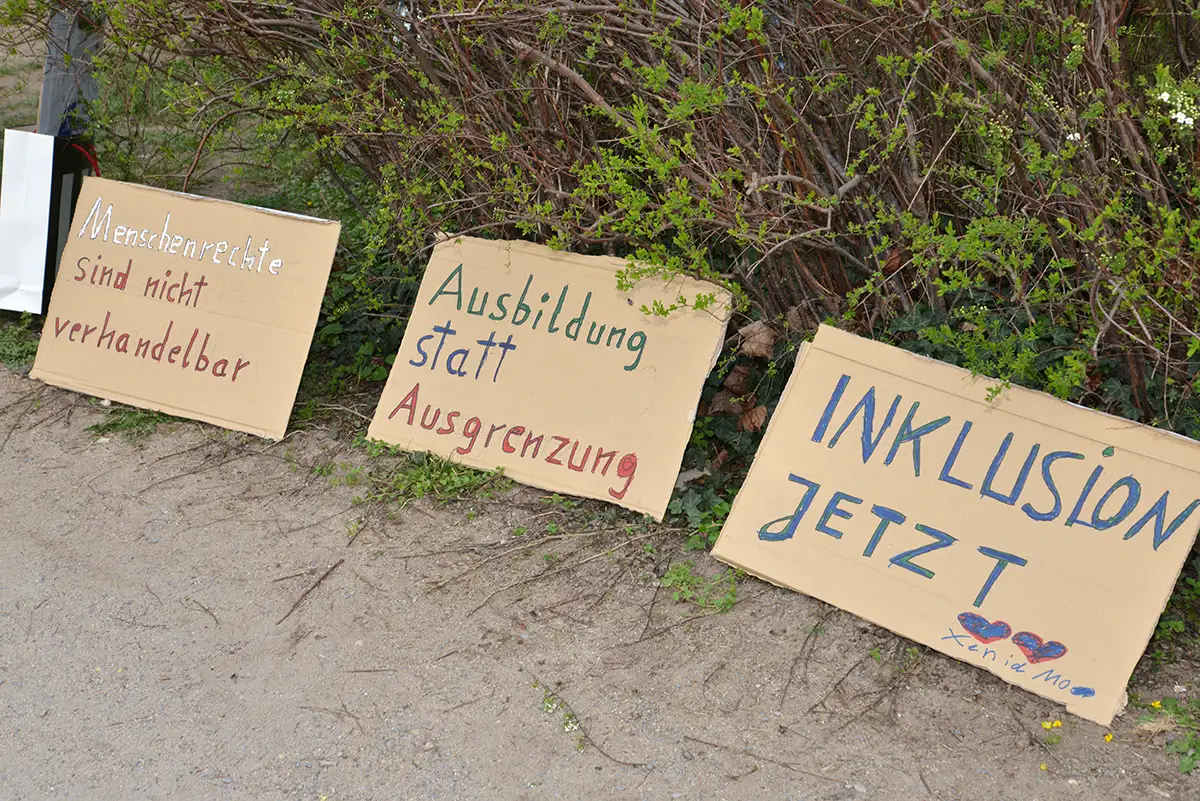 Menschenrechte
sind nicht
verhandelbar
Ausbildung
statt
Ausgrenzung
INKLUSION
JETZT
Xenia